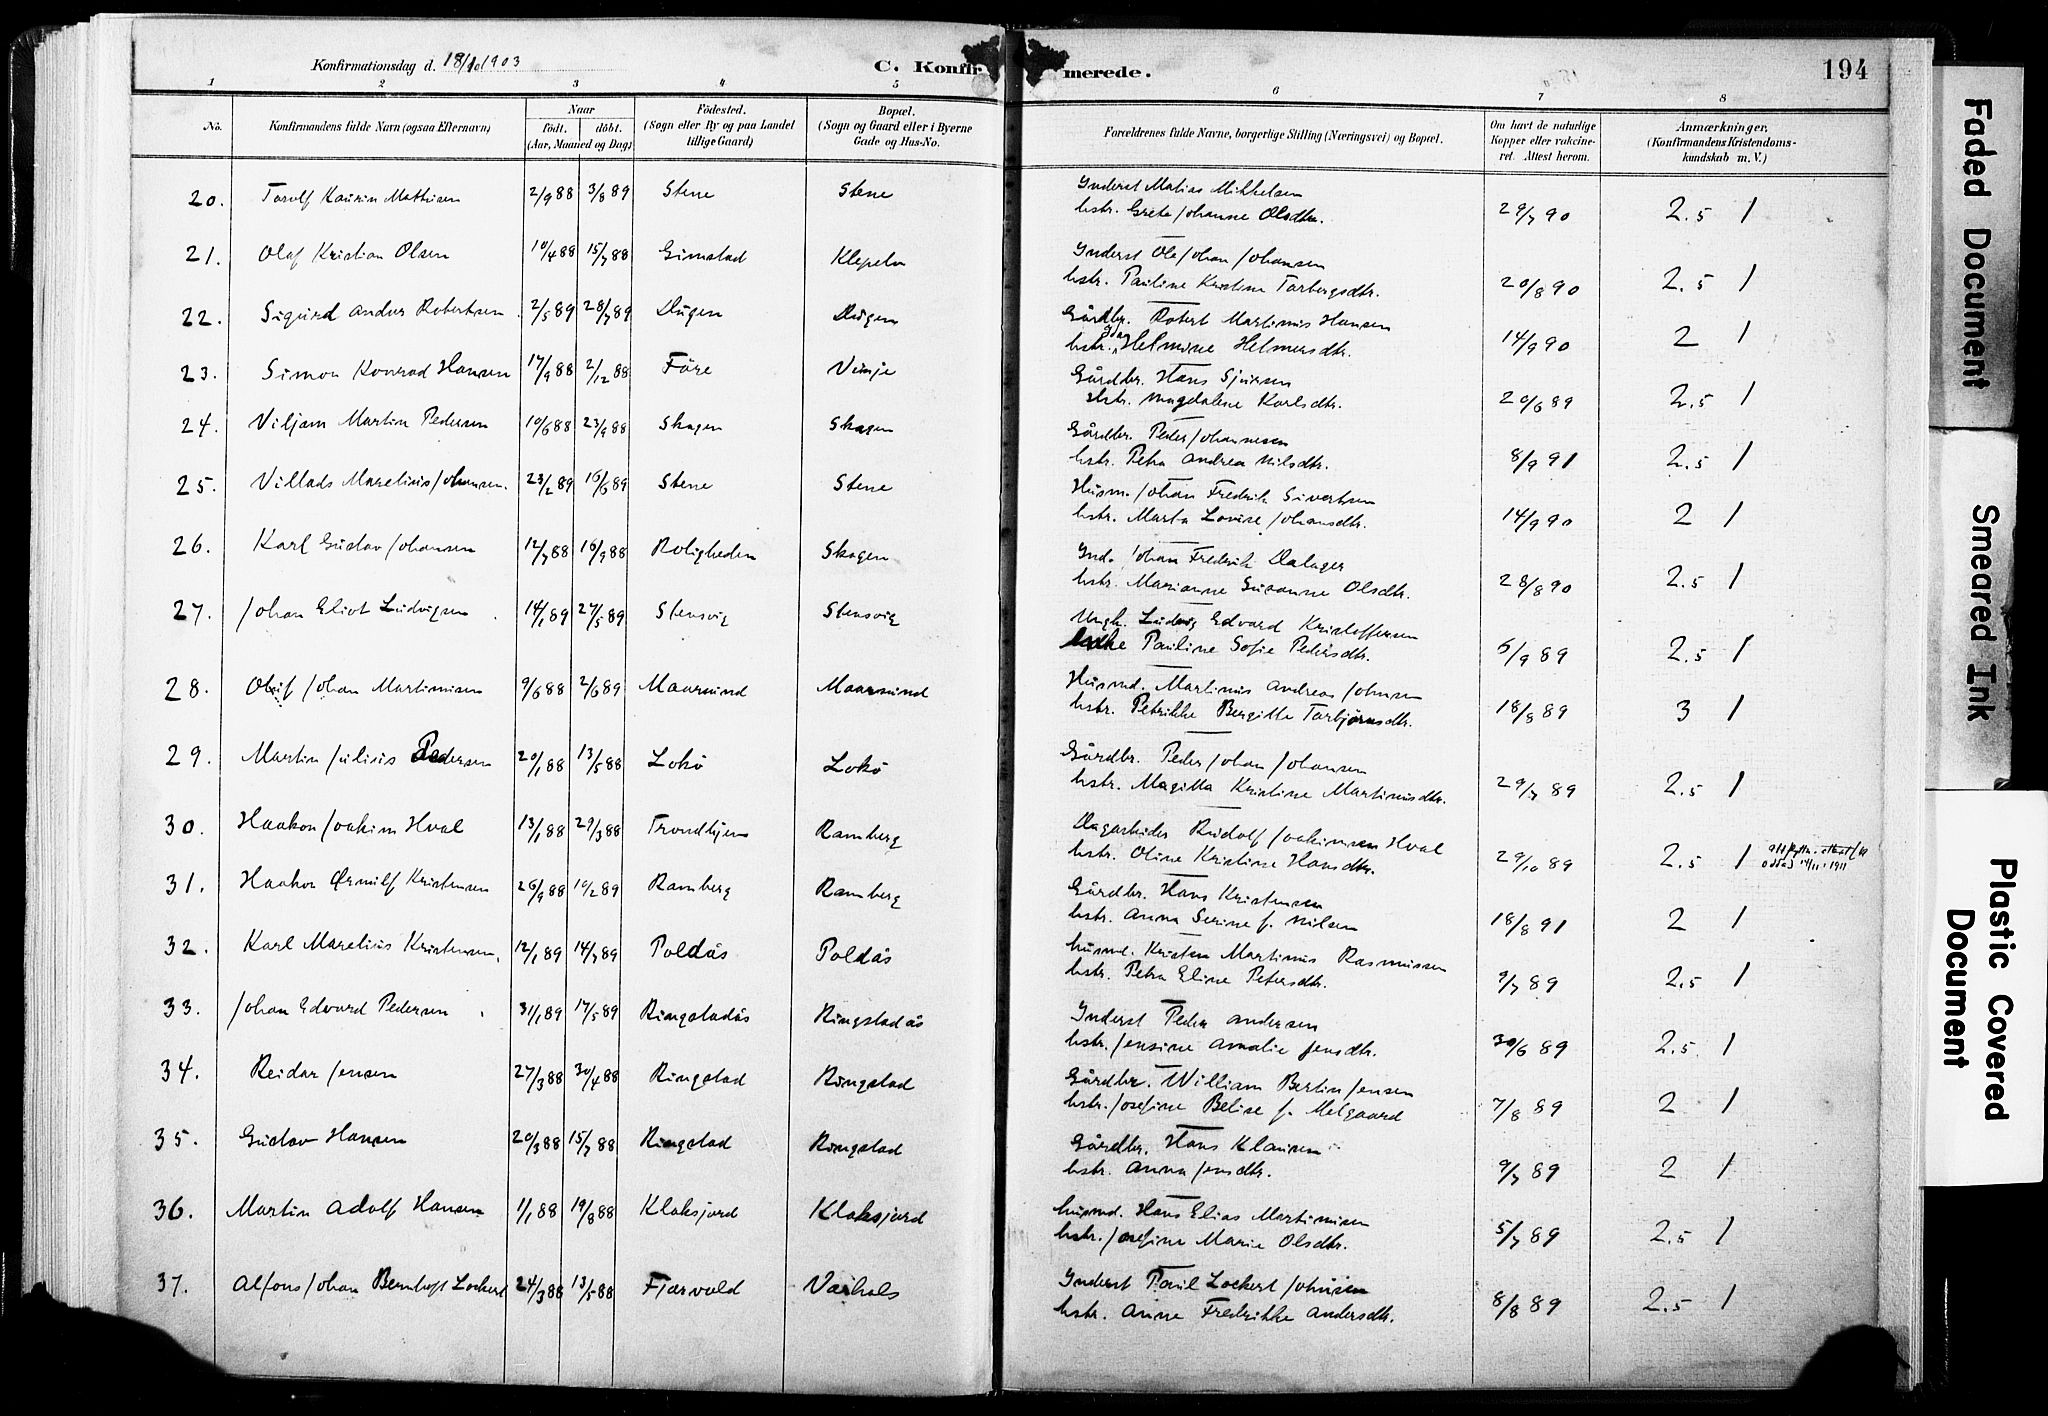 Konfirmationsdag d. 18/10 1903
C. Konfirmerede.
194
1 2 3 4 5 6 7 8
No.
Konfirmandens fulde Navn (ogsaa Efternavn)
Naar
födt. döbt.
(Aar, Maaned og Dag)
Födested.
(Sogn eller By og paa Landet
tillige Gaard)
Bopæl.
(Sogn og Gaard eller i Byerne
Gade og Hus-No.
Forældrenes fulde Navne, borgerlige Stilling (Næringsvei) og Bopæl.
Om havt de naturlige
Kopper eller vakcine-
ret. Attest herom.
Anmærkninger,
(Konfirmandens Kristendoms-
kundskab m. V.)
20. Torolf Kaurin Mathisen 2/9 88 3/8 89 Stene Stene Inderst Matias Mikkelsen
hstr. Grete Johanne Olsdtr. 29/7 90 2.5 1
21. Olaf Kristian Olsen 10/4 88 15/7 88 Gimstad Inderst Ole Johan Johansen
hstr. Pauline Kristine Torbergsdtr. 20/8 90 2.5 1
22. Sigurd Andor Robertsen 2/5 89 28/7 89 Gårdbr. Robert Martinus Hansen
hstr. Helmine Helmersdtr. 14/9 90 2 1
23. Simon Konrad Hansen 17/9 88 2/12 88 Före Vinje Gårdbr. Hans Sjursen
hstr. Magdalene Karlsdtr. 20/6 89 2.5 1
24. Viljam Martin Pedersen 10/6 88 23/9 88 Skagen Skagen Gårdbr. Peder Johannesen
hstr. Petra Andrea Nilsdtr. 8/9 91 2.5 1
25. Villads Marelius Johansen. 23/2 89 16/6 89 Stene Stene Husm. Johan Fredrik Sivertsen
hstr. Marta Lovise Johansdtr. 14/9 90 2 1
26. Karl Gustav Johansen 12/7 88 16/9 88 Roligheden Skagen Ind. Johan Fredrik Dalager
hstr. Marianne Susanne Olsdtr. 28/8 90 2.5 1
27. Johan Eliot Ludvigsen 14/1 89 27/5 89 Stensvig Stensvig Ungk. Ludvig Edvard Kristoffersen
Pauline Sofie Pedersdtr. 6/9 89 2.5 1
28. Oluf Johan Martinisen 9/6 88 2/6 89 Maarsund Maarsund Husmd. Martinus Andreas Johnsen
hstr. Petrikke Bergitte Torbjørnsdtr. 18/8 89 3 1
29. Martin Julius Pedersen 20/1 88 13/5 88 Lokö Lokö Gårdbr. Peder Johan Johansen
hstr. Magitta Kristine Martinusdtr. 29/7 89 2.5 1
30. Haakon Joakim Hval 13/1 88 29/3 88 Trondhjem Ramberg Dagarbeider Rudolf Joakimsen Hval
hstr. Oline Kristine Hansdtr. 29/10 89 2.5 1 14/11 1911
31. Haakon Ørnulf Kristensen 26/9 88 10/2 89 Ramberg Ramberg Gårdbr. Hans Kristensen
hstr. Anna Serine f. Nilsen 18/8 91 2 1
32. Karl Marelius Kristensen. 12/1 89 14/7 89 Poldås Poldås husmd. Kristen Martinus Rasmussen
hstr. Petra Eline Petersdtr. 9/7 89 2.5 1
33. Johan Edvard Pedersen 31/1 89 17/5 89 Ringstadås Ringstadås Inderst Peder Andersen
hstr. Jensine Amalie Jensdtr. 30/6 89 2.5. 1
34. Reidar Jensen 27/3 88 30/4 88 Ringstad Ringstad Gårdbr. William Bertin Jensen
hstr. Josefine Belise f. Melgaard 7/8 89 2 1
35. Gustav Hansen 20/3 88 15/7 88 Ringstad Ringstad Gårdbr. Hans Klausen
hstr. Anna Jensdtr. 9/7 89 2 1
36. Martin Adolf Hansen 1/1 88 19/8 88 Klaksjord Klaksjord husmd. Hans Elias Martinisen
hstr. Josefine Marie Olsdtr. 5/7 89 2.5 1
37. Alfons Johan Bernhoft Lockert 24/3 88 13/5 88 Fjærvold Varhols Inderst Paul Lockert Johnsen
hstr. Anne Fredrikke Andersdtr. 8/8 89 2.5 1
Faded Document
Smeared Ink
Plastic Covered
Document